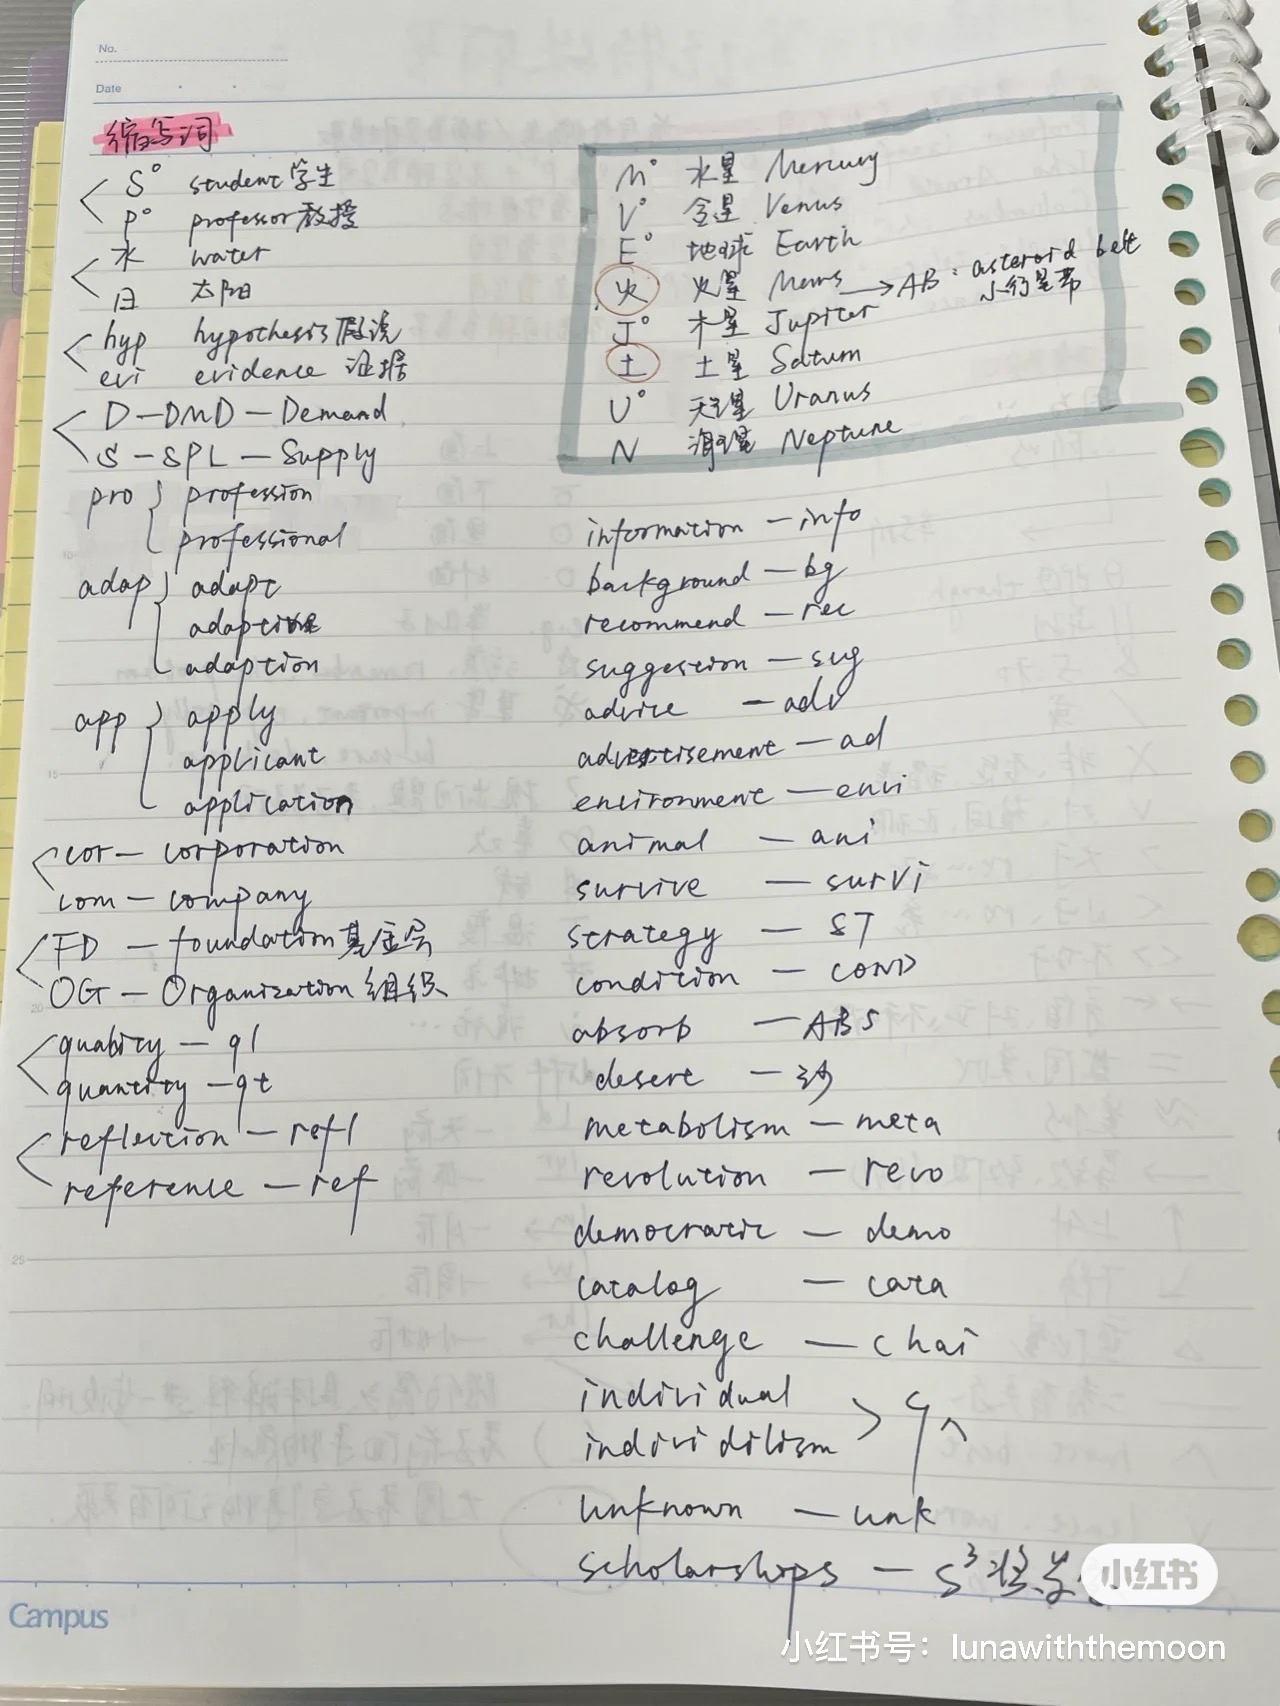 No.
Date
缩写词
S° student 学生
P° professor 教授
水 water
日 太阳
hyp hypothesis 假说
evi evidence 证据
D — DMD — Demand
S — SPL — Supply
pro } profession
professional
adap } adapt
adaptive
adaption
app } apply
applicant
application
cor — corporation
com — company
FD — foundation 基金会
OG — Organization 组织
quality — ql
quantity — qt
reflection — refl
reference — ref
M° 水星 Mercury
V° 金星 Venus
E° 地球 Earth
火 火星 Mars → AB: asteroid belt
小行星带
J° 木星 Jupiter
土 土星 Saturn
U° 天王星 Uranus
N 海王星 Neptune
information — info
background — bg
recommend — rec
suggestion — sug
advice — adv
advertisement — ad
environment — envi
animal — ani
survive — survi
strategy — ST
condition — COND
absorb — ABS
desert — 沙
metabolism — meta
revolution — revo
democratic — demo
catalog — cata
challenge — chai
individual
individilism
unknown — unk
scholarships — S³ 奖学
Campus
小红书
小红书号：lunawiththemoon